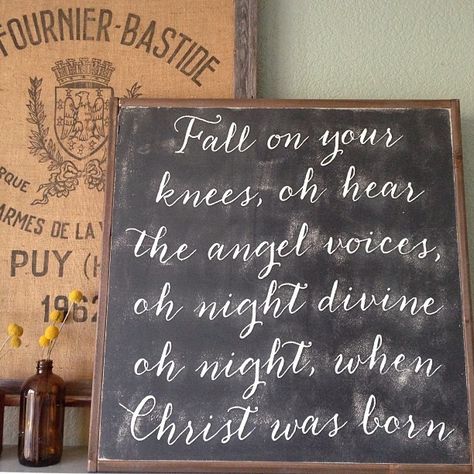 FOURNIER-BASTIDE
ARMES DE LA V
PUY (H
1962
Fall on your
knees, oh hear
the angel voices,
oh night divine
oh night, when
Christ was born